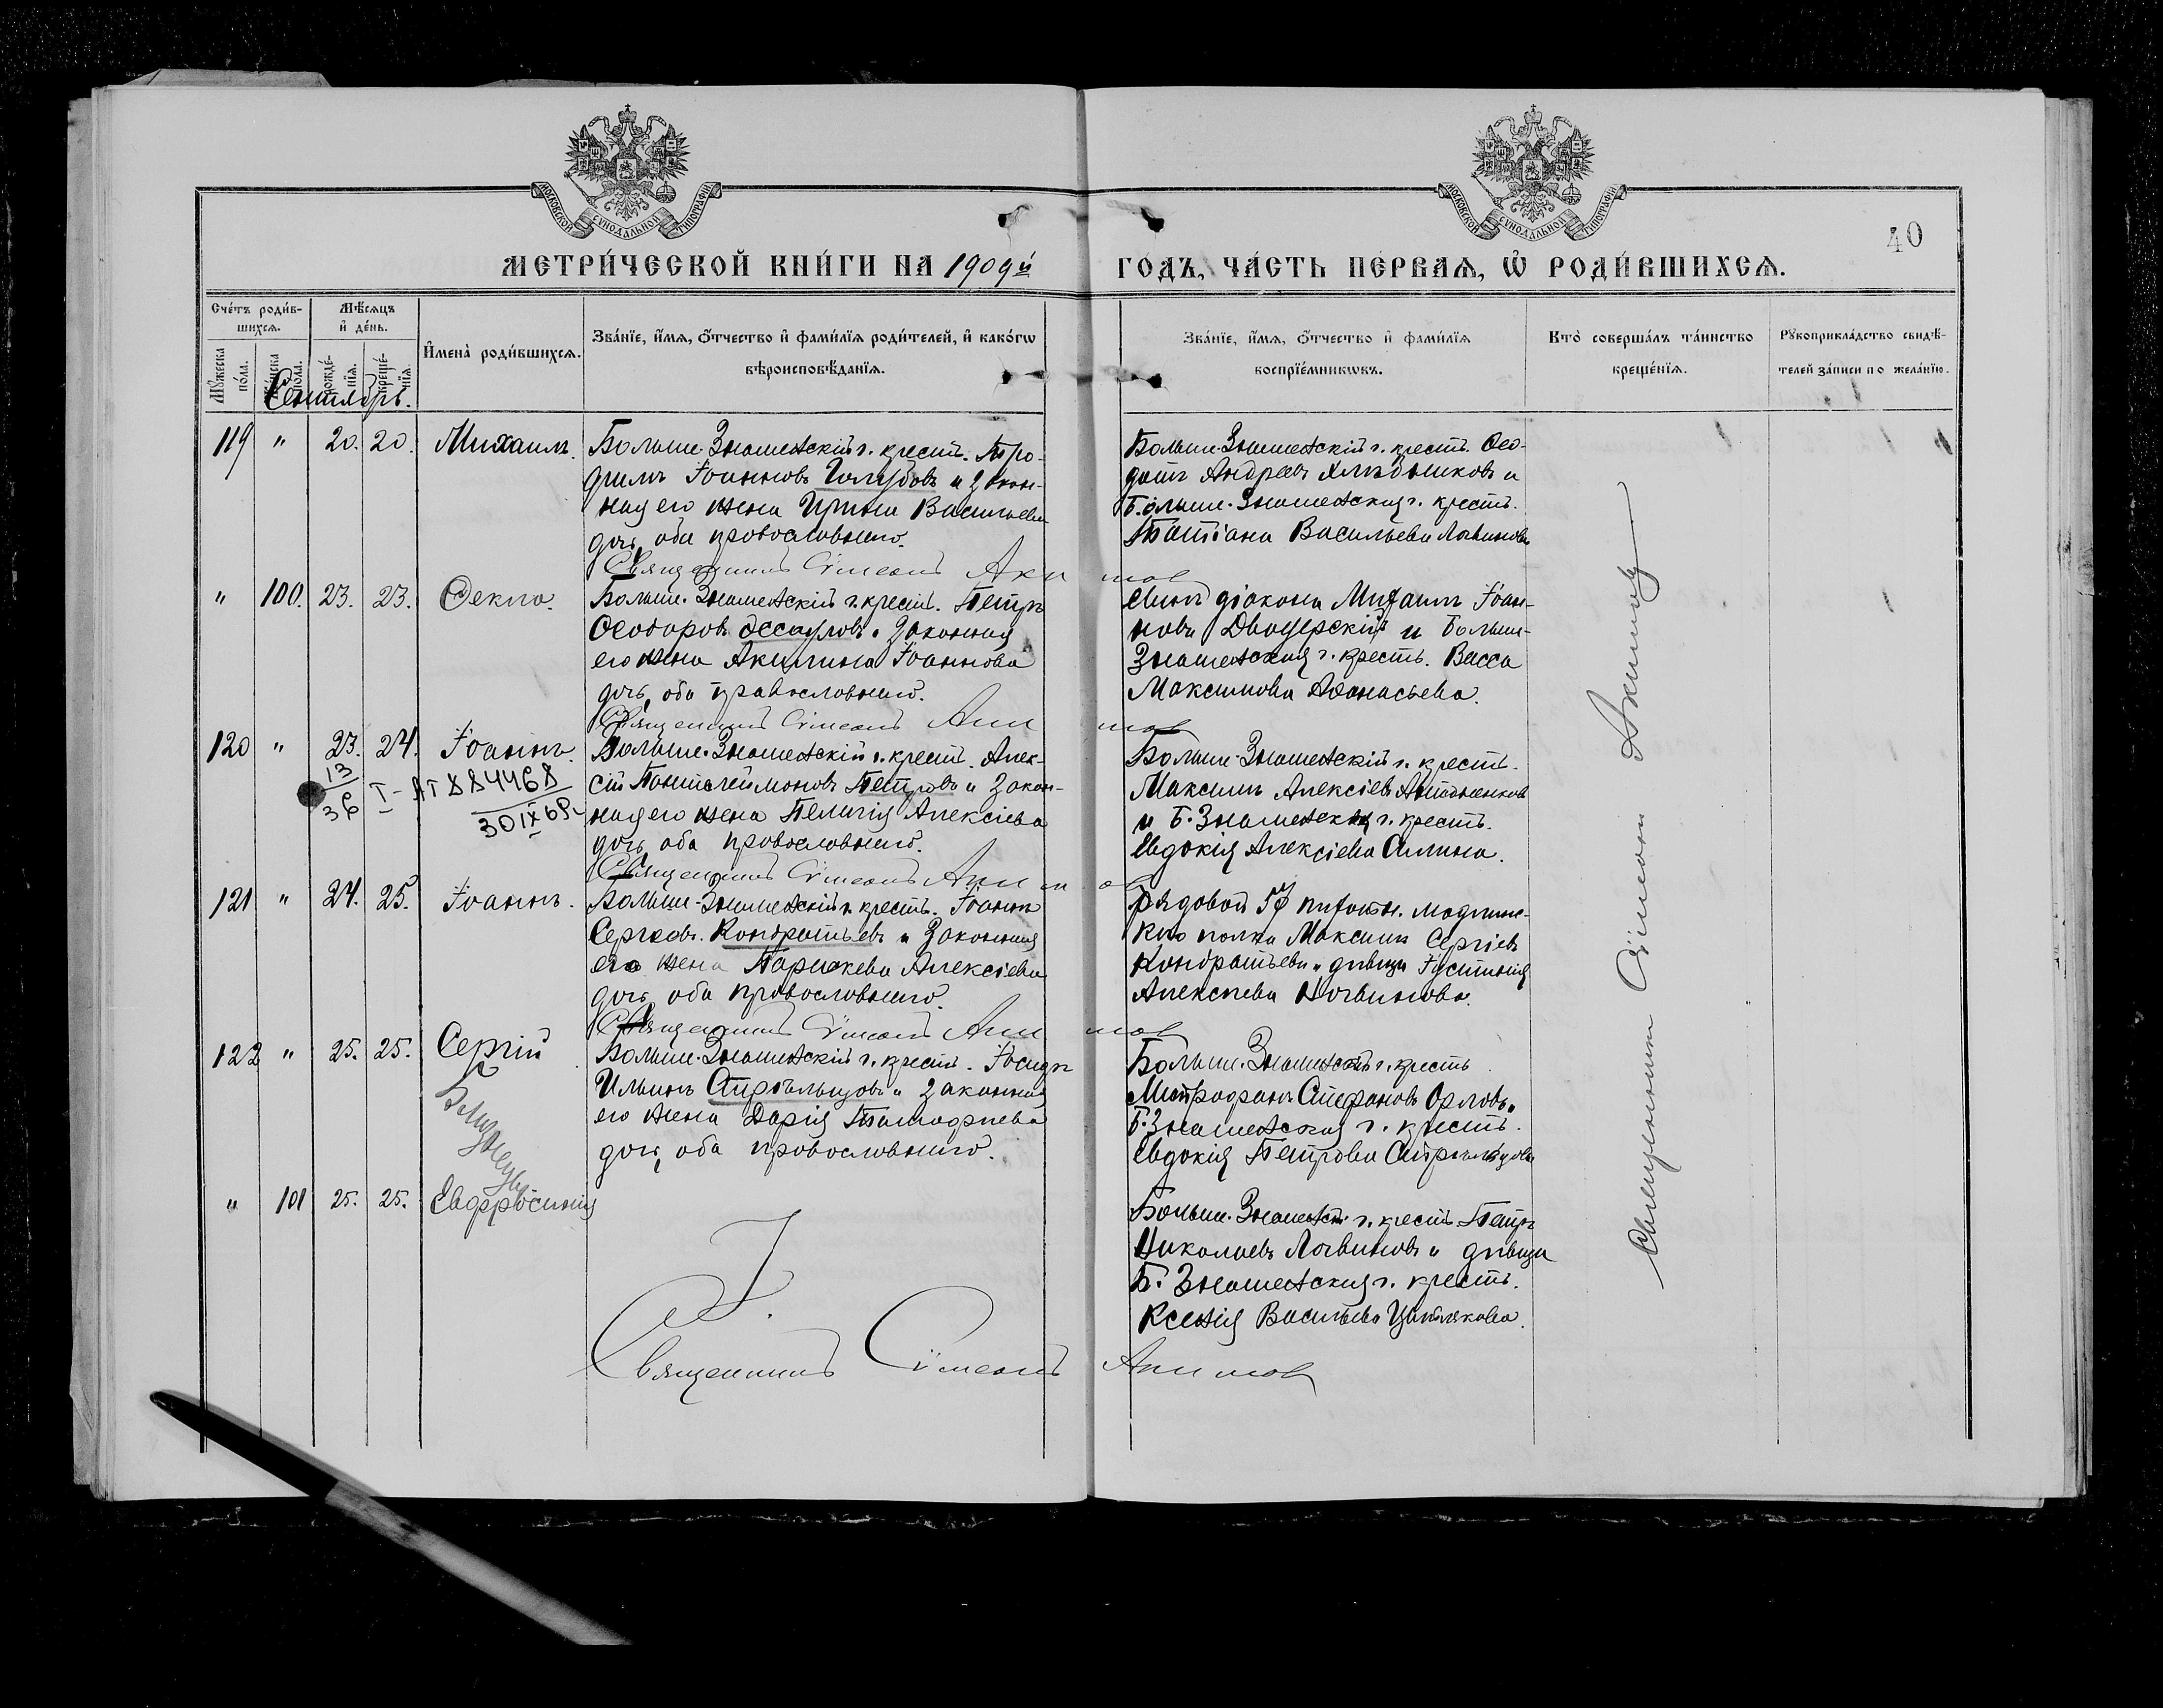 МОСКОВСКОЙ СѴНОДАЛЬНОЙ ТИПОГРАФИИ
МОСКОВСКОЙ СѴНОДАЛЬНОЙ ТИПОГРАФИИ
40
МЕТРИ́ЧЕСКОЙ КНИ́ГИ НА 1909й ГО́ДЪ, ЧА́СТЬ ПЕ́РВАѦ, Ѡ҆ РОДИ́ВШИХСѦ.
Сче́тъ роди́в-
шихсѧ.
Мꙋ́жеска по́ла.
Же́нска по́ла.
Мѣ́сѧцъ
и҆ де́нь.
рожде́-
нїѧ.
креще́-
нїѧ.
И҆мена̀ роди́вшихсѧ.
Зва́нїе, и҆́мѧ, ѻ҆́тчество и҆ фами́лїѧ роди́телей, и҆ како́гѡ
вѣроисповѣ́данїѧ.
Зва́нїе, и҆́мѧ, ѻ҆́тчество и҆ фами́лїѧ
воспрїе́мникѡвъ.
Кто̀ соверша́лъ та́инство
креще́нїѧ.
Рꙋкоприкла́дство свидѣ́-
телей за́писи по жела́нїю.
Сентябрь.
119 " 20. 20. Михаилъ.
Больше-Знаменскій г. крест. Тро-
фимъ Іоанновъ Голубовъ и закон-
ная его жена Ирина Васильева
дочь, оба православнаго.
Священникъ Сѵмеонъ Акимов
Больше-Знаменскій г. крест. Ѳео-
дотъ Андреевъ Хлѣбниковъ и
Больше-Знаменская г. крест.
Татіана Васильева Логвинова
" 100. 23. 23. Ѳекла.
Больше-Знаменскій г. крест. Петръ
Ѳеодоровъ Ессауловъ и законная
его жена Акилина Іоаннова
дочь, оба православнаго.
Священникъ Сѵмеонъ Акимов
Сынъ діакона Михаилъ Іоан-
новъ Двоцерскій и Больше-
Знаменская г. крест. Васса
Максимова Аѳанасьева.
120 " 23. 24. Іоаннъ.
13
36
I-АТ 884468
30 IX 69
Больше-Знаменскій г. крест. Алек-
сій Пантелеймоновъ Петровъ и закон-
ная его жена Пелагія Алексіева
дочь, оба православнаго.
Священникъ Сѵмеонъ Акимов
Больше-Знаменскій г. крест.
Максимъ Алексіевъ Антоненковъ
и Б. Знаменская г. крест.
Евдокія Алексіева Силина.
121 " 24. 25. Іоаннъ.
Больше-Знаменскій г. крест. Іоаннъ
Сергіевъ Кондратьевъ и законная
его жена Параскева Алексіева
дочь, оба православнаго.
Священникъ Сѵмеонъ Акимов
Рядовой 57 пѣхотн. Модлинс-
каго полка Максимъ Сергіевъ
Кондратьевъ и дѣвица Іустинія
Алексѣева Логвинова.
122 " 25. 25. Сергій
Близнецы
Больше-Знаменскій г. крест. Іосифъ
Ильинъ Стрѣльцовъ и законная
его жена Дарія Тимофѣева
дочь, оба православнаго.
Больше-Знаменскій г. крест.
Митрофанъ Стефановъ Орловъ и
Б. Знаменская г. крест.
Евдокія Петрова Стрѣльцова
" 101 25. 25. Евфросинія
Больше-Знаменск. г. крест. Петръ
Николаевъ Логвиновъ и дѣвица
Б. Знаменская г. крест.
Ксенія Васильева Цыбулякова.
Священникъ Сѵмеонъ Акимов
Священникъ Сѵмеонъ Акимовъ